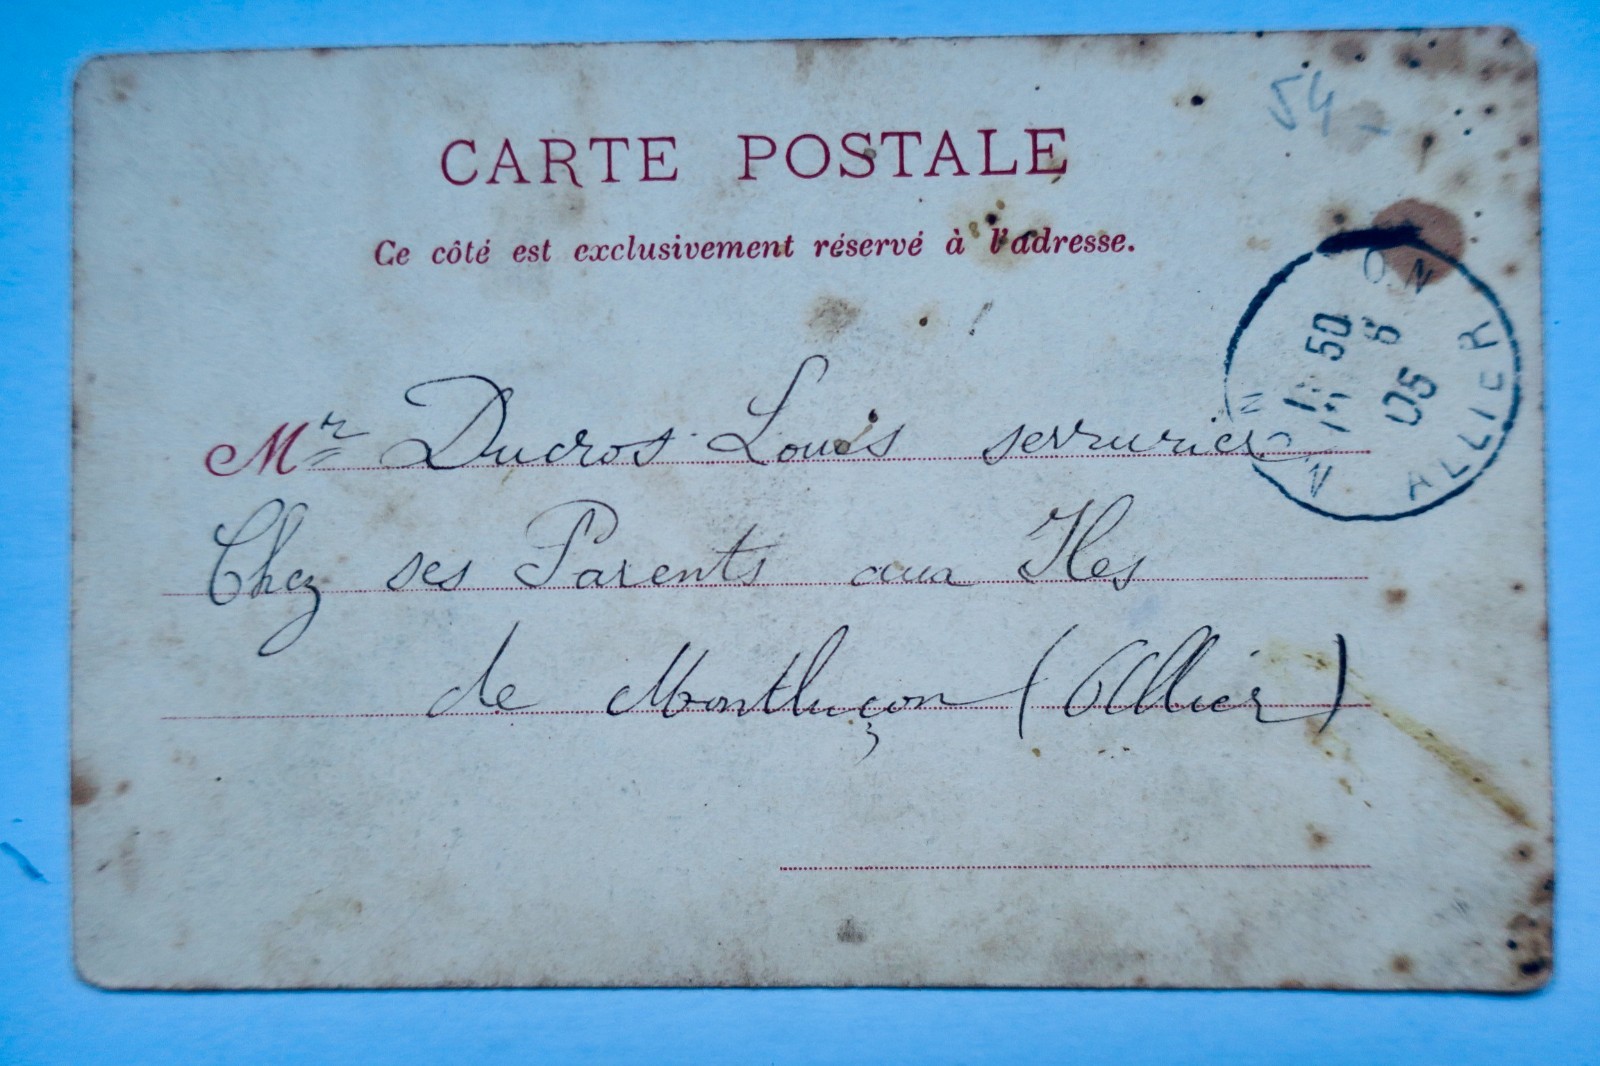 54
CARTE POSTALE
Ce côté est exclusivement réservé à l'adresse.
Mr Ducros Louis serrurier
Chez ses Parents aux Iles
de Montluçon (Allier)
50
8
05
ALLIER